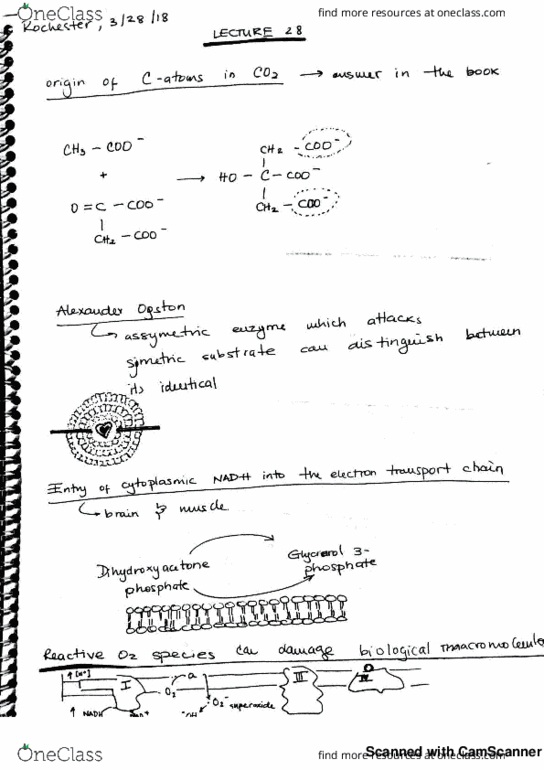 OneClass
find more resources at oneclass.com
Rochester, 3/28/18
LECTURE 28
origin of C-atoms in CO2 → answer in the book
CH3 - COO-
+
O = C - COO-
CH2 - COO-
→
CH2 - COO-
HO - C - COO-
CH2 - COO-
Alexander Ogston
assymetric enzyme which attacks
simetric substrate can distinguish between
its identical
Entry of cytoplasmic NADH into the electron transport chain
brain & muscle
Dihydroxyacetone
phosphate
Glycerol 3-
phosphate
Reactive O2 species can damage biological macromolecules
↑ [H+]
I
Q
O2
O2- superoxide
III
IV
↑ NADH
OneClass
find more resources at oneclass.com
Scanned with CamScanner